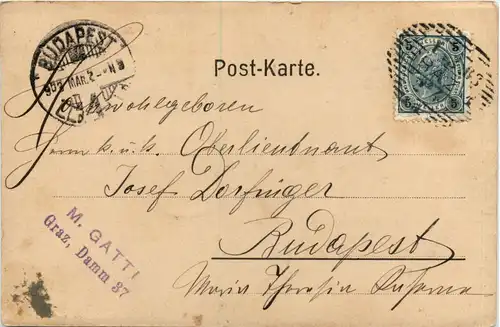 BUDAPEST
Post-Karte.
5 5
5 5
Hochwohlgeboren
Herrn k.u.k. Oberlieutnant
Josef Dorfinger
Budapest
Maria Theresien Kaserne
M. GATTI
Graz, Damm 37